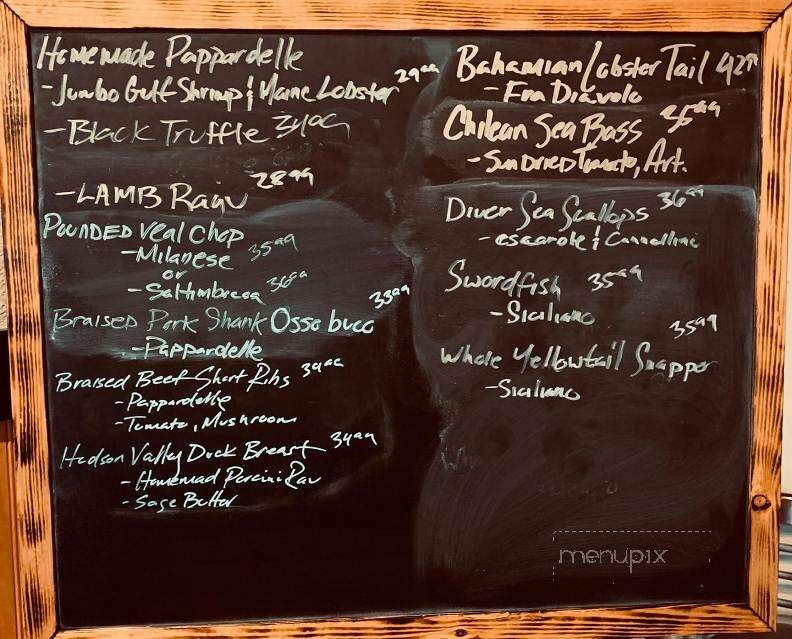 Homemade Pappardelle
- Jumbo Gulf Shrimp & Maine Lobster 29 99
- Black Truffle 34 99
- LAMB Ragu 28 99
POUNDED Veal Chop
- Milanese 35 99
or
- Saltimbocca 36 99
Braised Pork Shank Osso buco 33 99
- Pappardelle
Braised Beef Short Ribs 34 99
- Pappardelle
- Tomato, Mushroom
Hudson Valley Duck Breast 34 99
- Homemad Porcini Rav
- Sage Butter
Bahamian Lobster Tail 42 99
- Fra Diavolo
Chilean Sea Bass 35 99
- Sundried Tomato, Art.
Diver Sea Scallops 36 99
- escarole & Cannellini
Swordfish 35 99
- Siciliano
Whole Yellowtail Snapper 35 99
- Siciliano
Wh
menupix